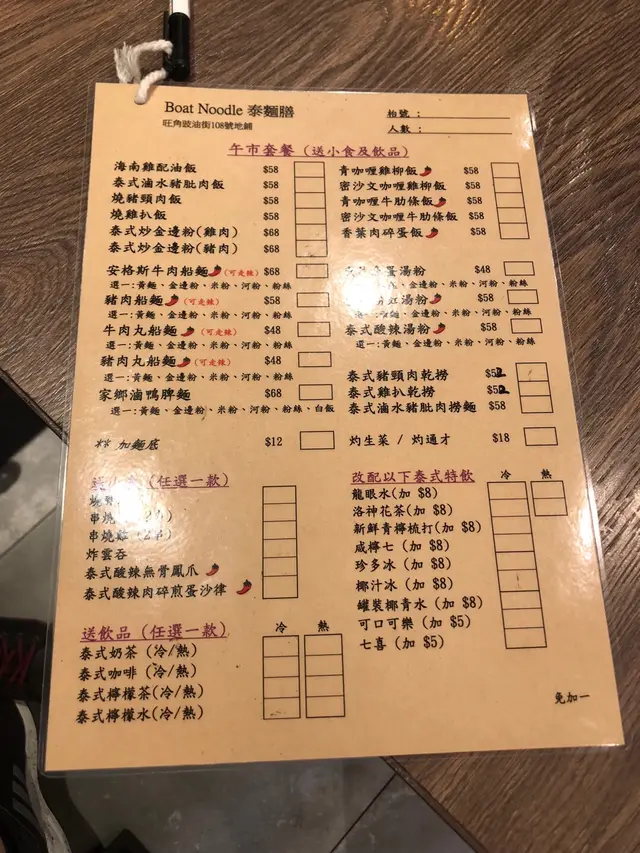 Boat Noodle 泰麵膳
旺角豉油街108號地鋪
枱號：
人數：
午市套餐（送小食及飲品）
海南雞配油飯 $58
泰式滷水豬肶肉飯 $58
燒豬頸肉飯 $58
燒雞扒飯 $58
泰式炒金邊粉(雞肉) $68
泰式炒金邊粉(豬肉) $68
青咖喱雞柳飯 $58
密沙文咖喱雞柳飯 $58
青咖喱牛肋條飯 $58
密沙文咖喱牛肋條飯 $58
香葉肉碎蛋飯 $58
安格斯牛肉船麵 (可走辣) $68
選一:黃麵、金邊粉、米粉、河粉、粉絲
豬肉船麵 (可走辣) $58
選一:黃麵、金邊粉、米粉、河粉、粉絲
牛肉丸船麵 (可走辣) $48
選一:黃麵、金邊粉、米粉、河粉、粉絲
豬肉丸船麵 (可走辣) $48
選一:黃麵、金邊粉、米粉、河粉、粉絲
家鄉滷鴨脾麵 $68
選一:黃麵、金邊粉、米粉、河粉、粉絲、白飯
蛋湯粉 $48
選一:黃麵、金邊粉、米粉、河粉、粉絲
湯粉 $58
選一:黃麵、金邊粉、米粉、河粉、粉絲
泰式酸辣湯粉 $58
選一:黃麵、金邊粉、米粉、河粉、粉絲
泰式豬頸肉乾撈 $52
泰式雞扒乾撈 $52
泰式滷水豬肶肉撈麵 $58
加麵底 $12
灼生菜 / 灼通才 $18
送小食 (任選一款)
串燒
串燒
炸雲吞
泰式酸辣無骨鳳爪
泰式酸辣肉碎煎蛋沙律
送飲品 (任選一款) 冷 熱
泰式奶茶 (冷/熱)
泰式咖啡 (冷/熱)
泰式檸檬茶(冷/熱)
泰式檸檬水(冷/熱)
改配以下泰式特飲 冷 熱
龍眼水(加 $8)
洛神花茶(加 $8)
新鮮青檸梳打(加 $8)
咸檸七 (加 $8)
珍多冰 (加 $8)
椰汁冰 (加 $8)
罐裝椰青水 (加 $8)
可口可樂 (加 $5)
七喜 (加 $5)
免加一